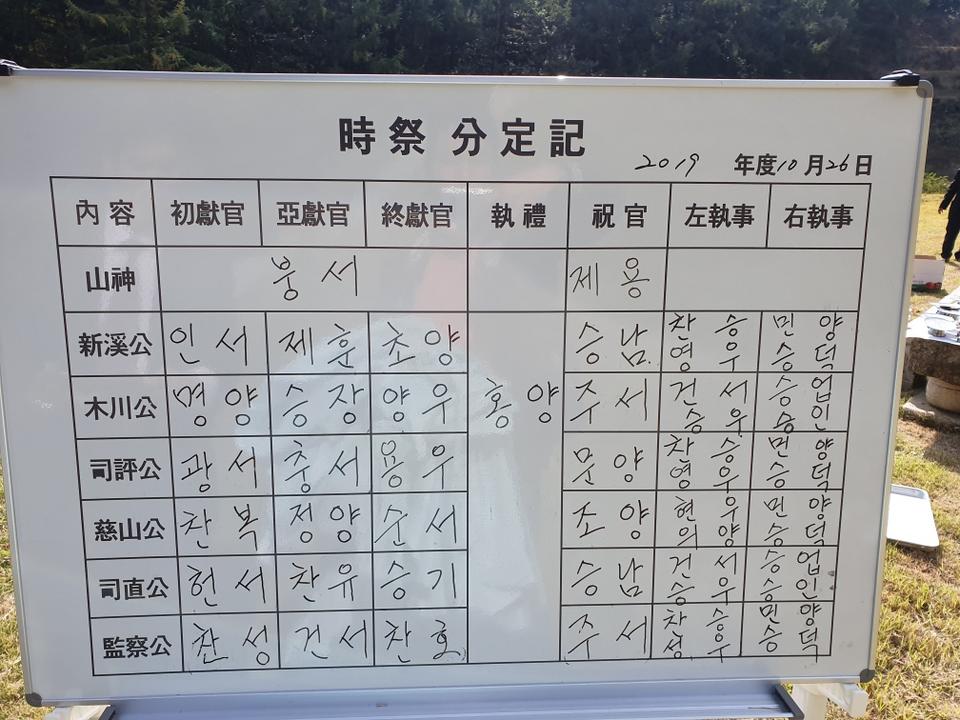 時祭 分定記
2019 年度10月26日
內容 初獻官 亞獻官 終獻官 執禮 祝官 左執事 右執事
山神 붕서 제용
新溪公 인서 제훈 초양 승남 찬승 민양
영우 승덕
木川公 명양 승장 양우 홍양 주서 건서 승업
승우 승인
司評公 광서 충서 용우 문양 찬승 민양
영우 승덕
慈山公 찬복 정양 순서 초양 현우 민양
의양 승덕
司直公 헌서 찬유 승기 승남 건서 승업
승우 승인
監察公 찬성 건서 찬호 주서 찬승 민양
성우 승덕